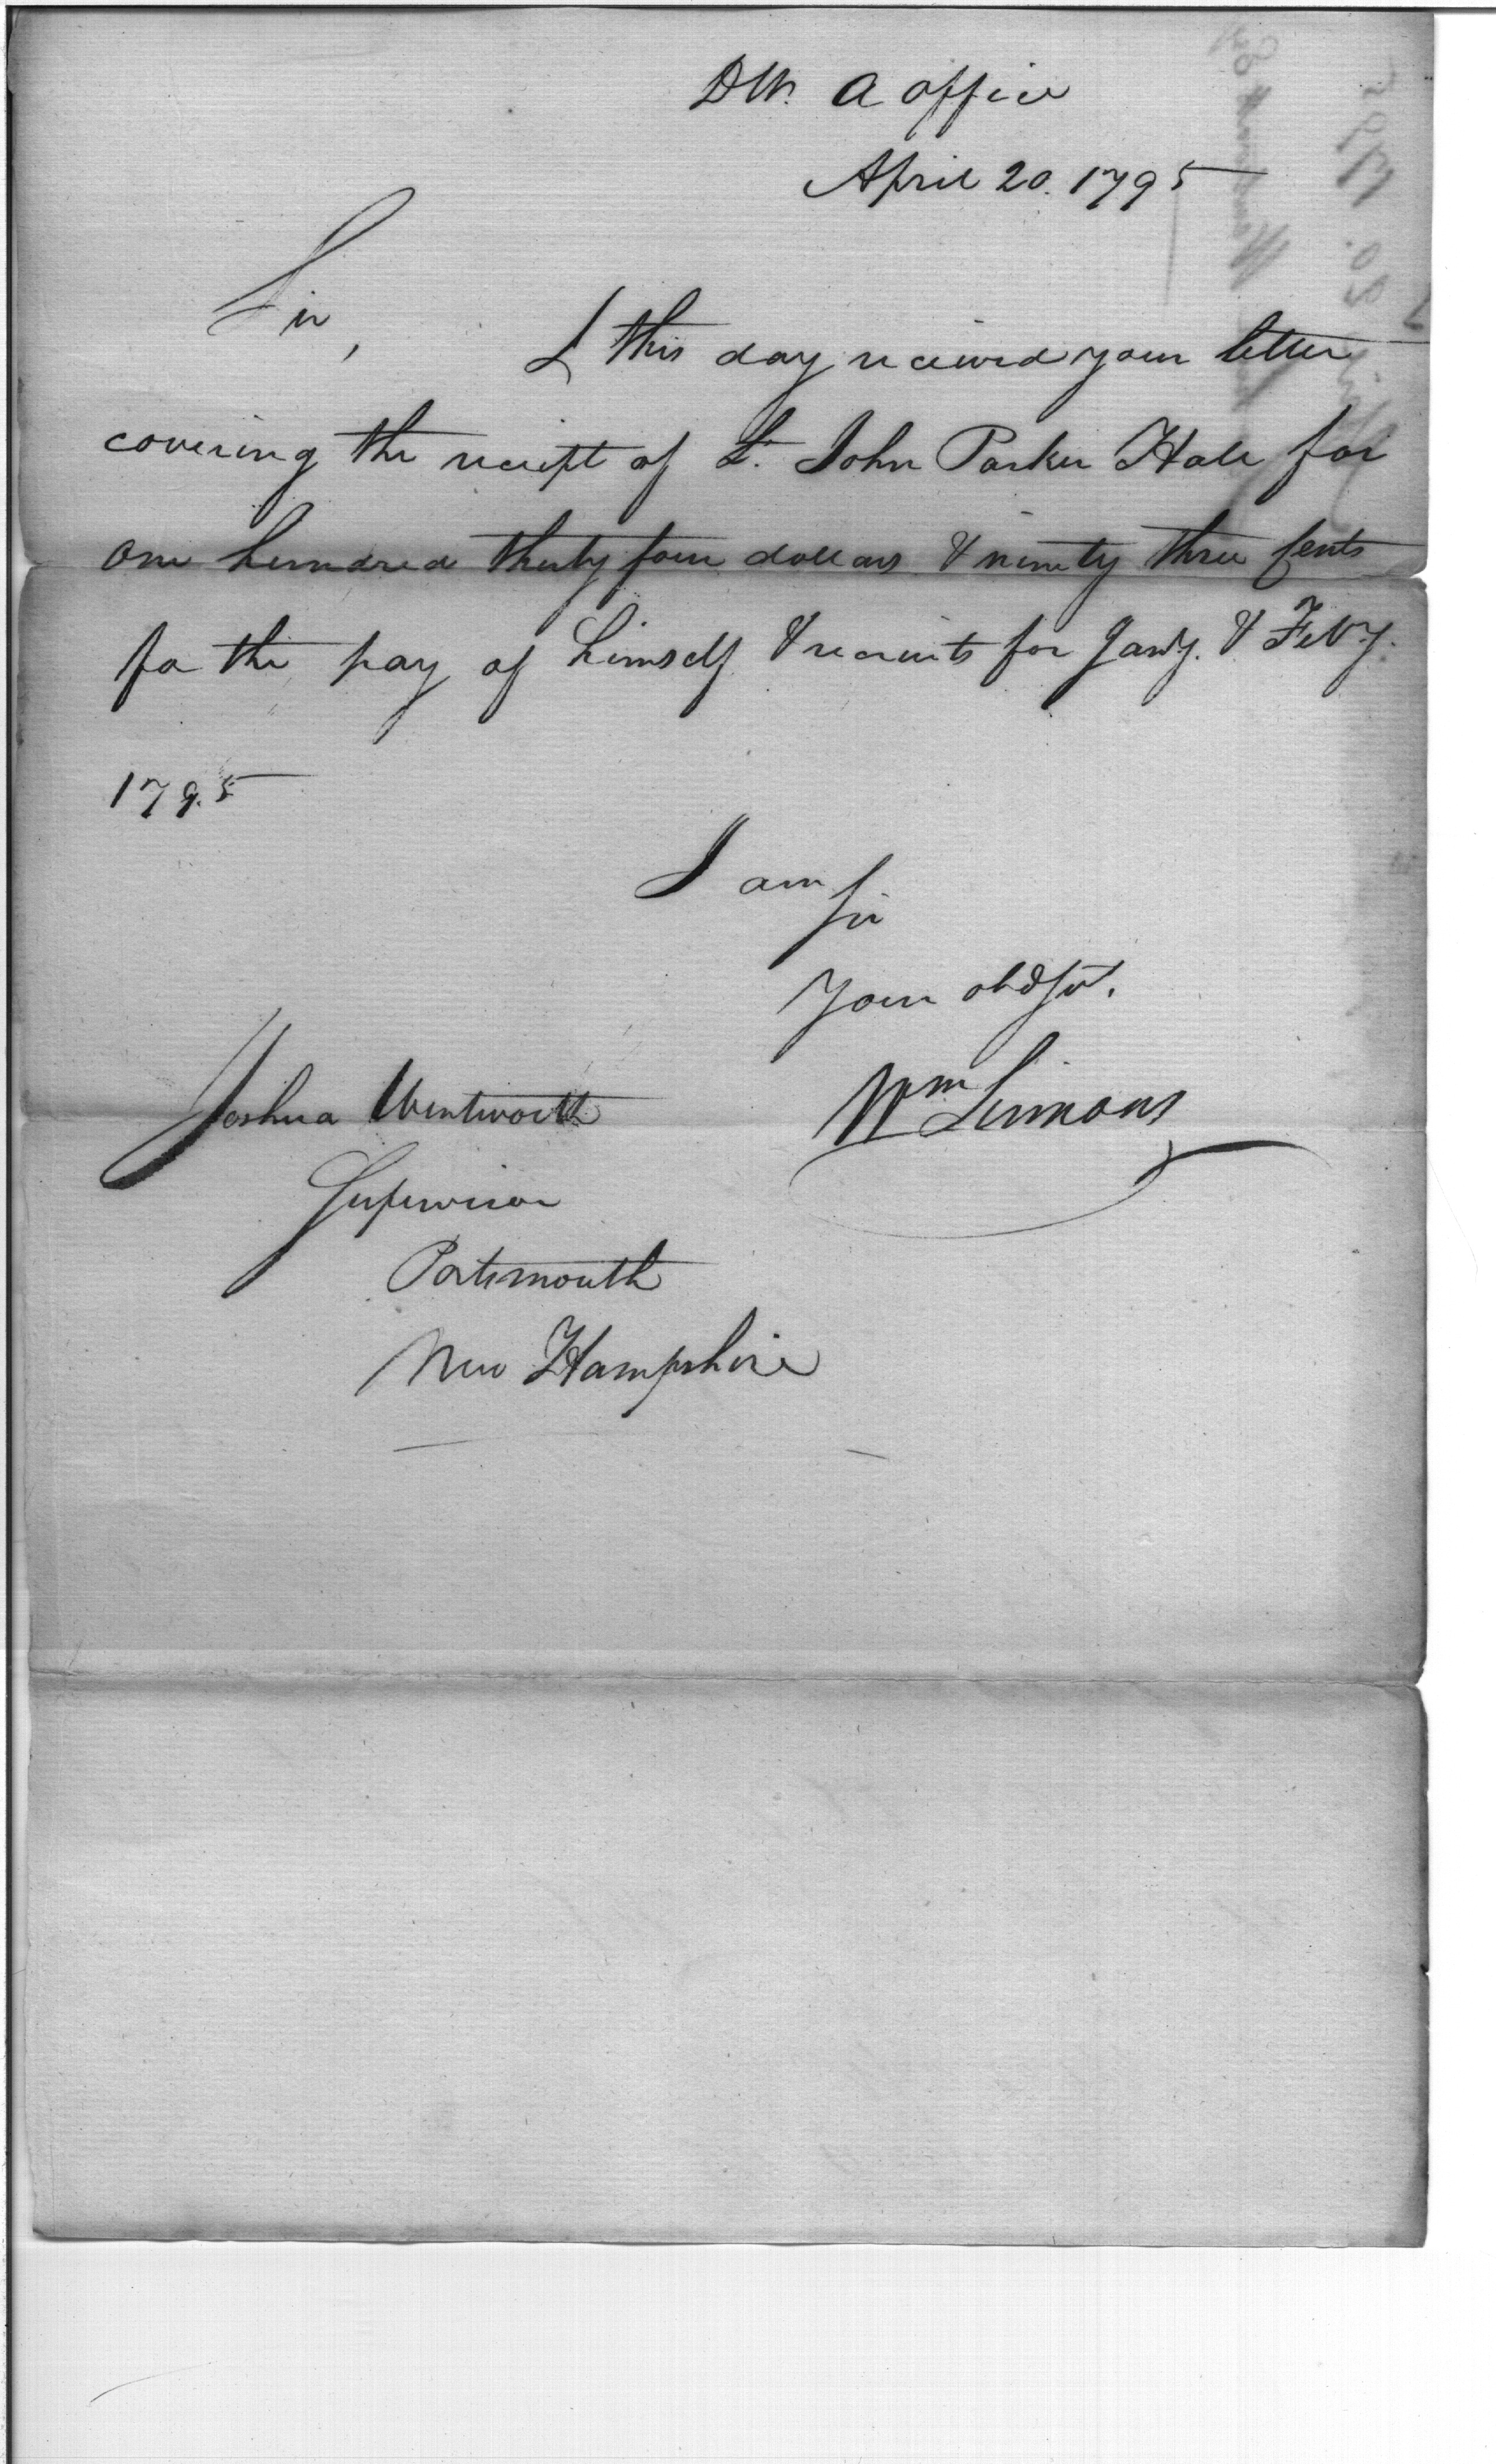 DW. A office
April 20. 1795
Sir,
I this day received your letter
covering the receipt of Lt. John Parker Hale for
one hundred thirty four dollars & ninety three Cents
for the pay of himself & recruits for Jany. & Feby.
1795
I am
Sir
Your obd Svt.
Wm Simmons
Joshua Wentworth
Supervisor
Portsmouth
New Hampshire